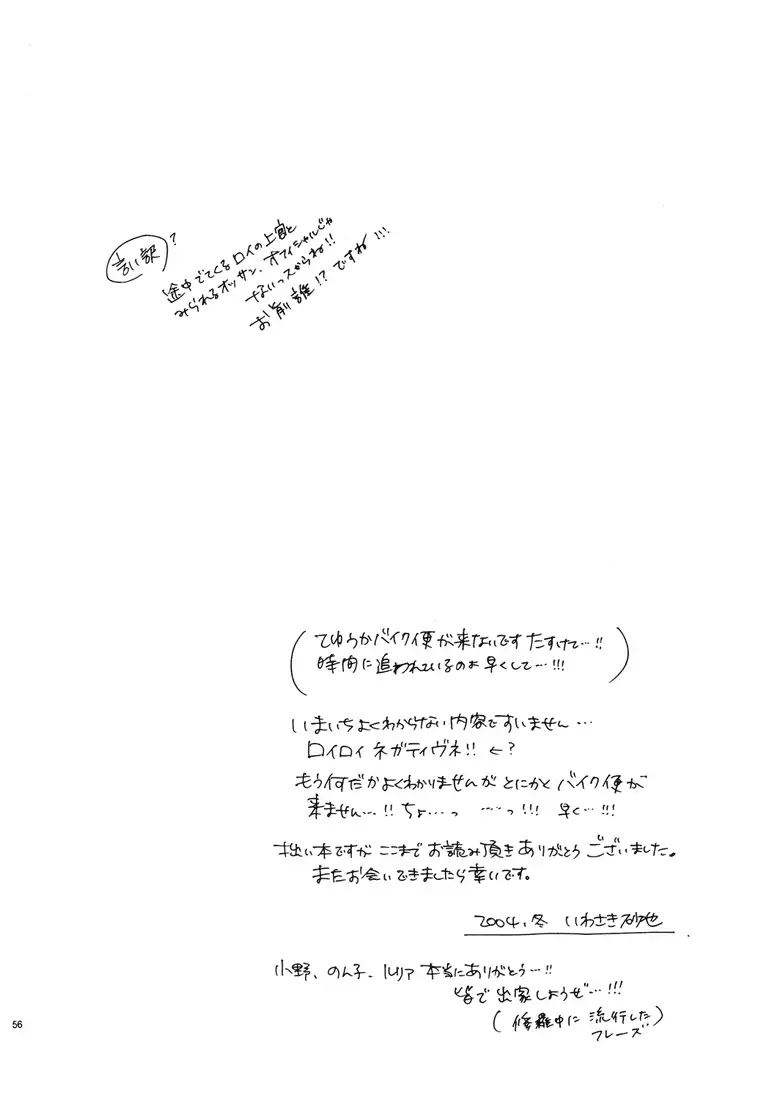 言い訳?
途中ででてくるロイの上官と
みられるオッサン、オフィシャルじゃ
ないっスからね!!
お前誰!?ですね!!!
(てゆうかバイク便が来ないです たすけて…!!
時間に追われているのよ早くして…!!!)
いまいちよくわからない内容ですいません…
ロイロイ ネガティヴネ!! ←?
もう何だかよくわかりませんが とにかく バイク便が
来ません…!! ちょ…っ ……っ!!! 早く…!!!
拙い本ですが ここまで お読み頂き ありがとう ございました。
またお会いできましたら幸いです。
2004.冬 いわさき砂也
小野、のん子、ルリア 本当にありがとう…!!
皆で出家しようぜ…!!!
(修羅中に 流行した
フレーズ)
56